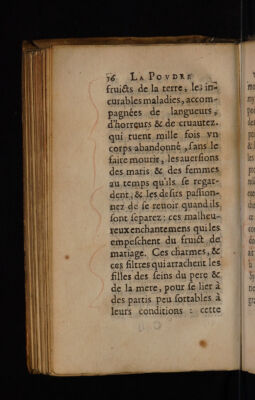 36 LA POVDRE
fruicts de la terre, les in-
curables maladies, accom-
pagnées de langueurs,
d'horreurs & de cruautez,
qui tuent mille fois vn
corps abandonné, sans le
faire mourir, les auersions
des maris & des femmes
au temps qu'ils se regar-
dent, & les desirs passion-
nez de se reuoir quand ils
sont separez: ces malheu-
reux enchantemens qui les
empeschent du fruict de
mariage. Ces charmes, &
ces filtres qui attachent les
filles des seins du pere &
de la mere, pour se lier à
des partis peu sortables à
leurs conditions : cette